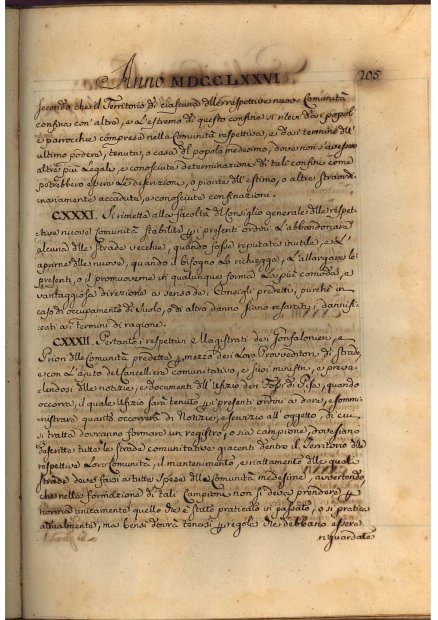 Anno MDCCLXXVI 205
secondo che il Territorio di ciascuna delle respettive nuove Comunità
confina con altro, e l'estremo di questo confine si rileva dai popoli
e parrocchie comprese nella Comunità respettiva, e dai termini dell'
ultimo podere, tenuta, o casa del popolo medesimo, dove non si avessero
altre più legale, e conosciuta determinazione di tale confine come
potrebbero essere le descrizioni, o piante dell'estimo, o altre straordi-
nariamente accadute, e conosciute confinazioni.
CXXXI. Si rimette alla facoltà del Consiglio generale delle respet-
tive nuove Comunità stabilite p i presenti ordini l'abbandonare
alcuna delle strade vecchie, quando fosse reputata inutile, e l'
aprirne delle nuove, quando il bisogno lo richiegga, l'allargare le
presenti, o il promuoverne in qualunque forma la più comoda, e
vantaggiosa direzione a senso dei Consigli predetti, purchè in
caso di occupamento di suolo, o di altro danno siano resarciti i dannifi-
cati ai termini di ragione.
CXXXII. Pertanto i respettivi Magistrati dei Gonfalonieri, e
Priori delle Comunità predette p mezzo dei loro Provveditori di strade,
e con l'aiuto del Cancelliere comunitativo, e suoi ministri, e preva-
lendosi delle notizie, e documenti dell'Ufizio dei Fossi di Pisa, quando
occorra, il quale Ufizio sarà tenuto p i presenti ordini a dare, e sommi-
nistrare quanto occorrerà di Notizie, e servizio all'oggetto, di cui
si tratta dovranno formare un registro, o sia campione, dove siano
descritte tutte le strade comunitative giacenti dentro il Territorio delle
respettive loro Comunità, il mantenimento, e riattamento delle quali
strade deve farsi a tutte spese delle Comunità medesime, avvertendo,
che nella formazione di tali Campioni non si deve prendere p
norma unicamente quello che è stato praticato in passato, o si pratica
attualmente, ma bensì dovrà tenersi p regola che debbano essere
riguardate